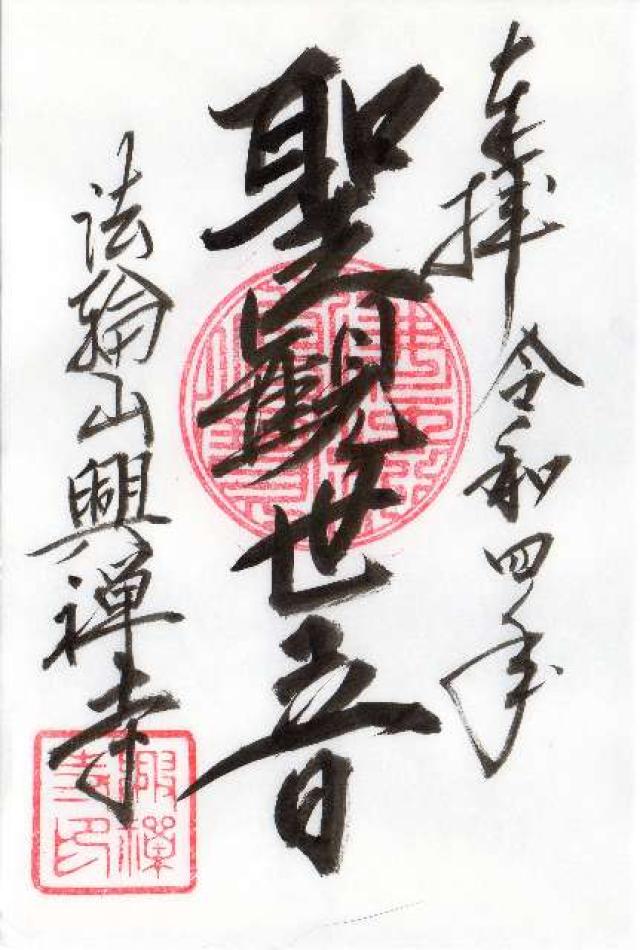 奉拝 令和四年
聖觀世音
法輪山興禅寺
興禅
寺印